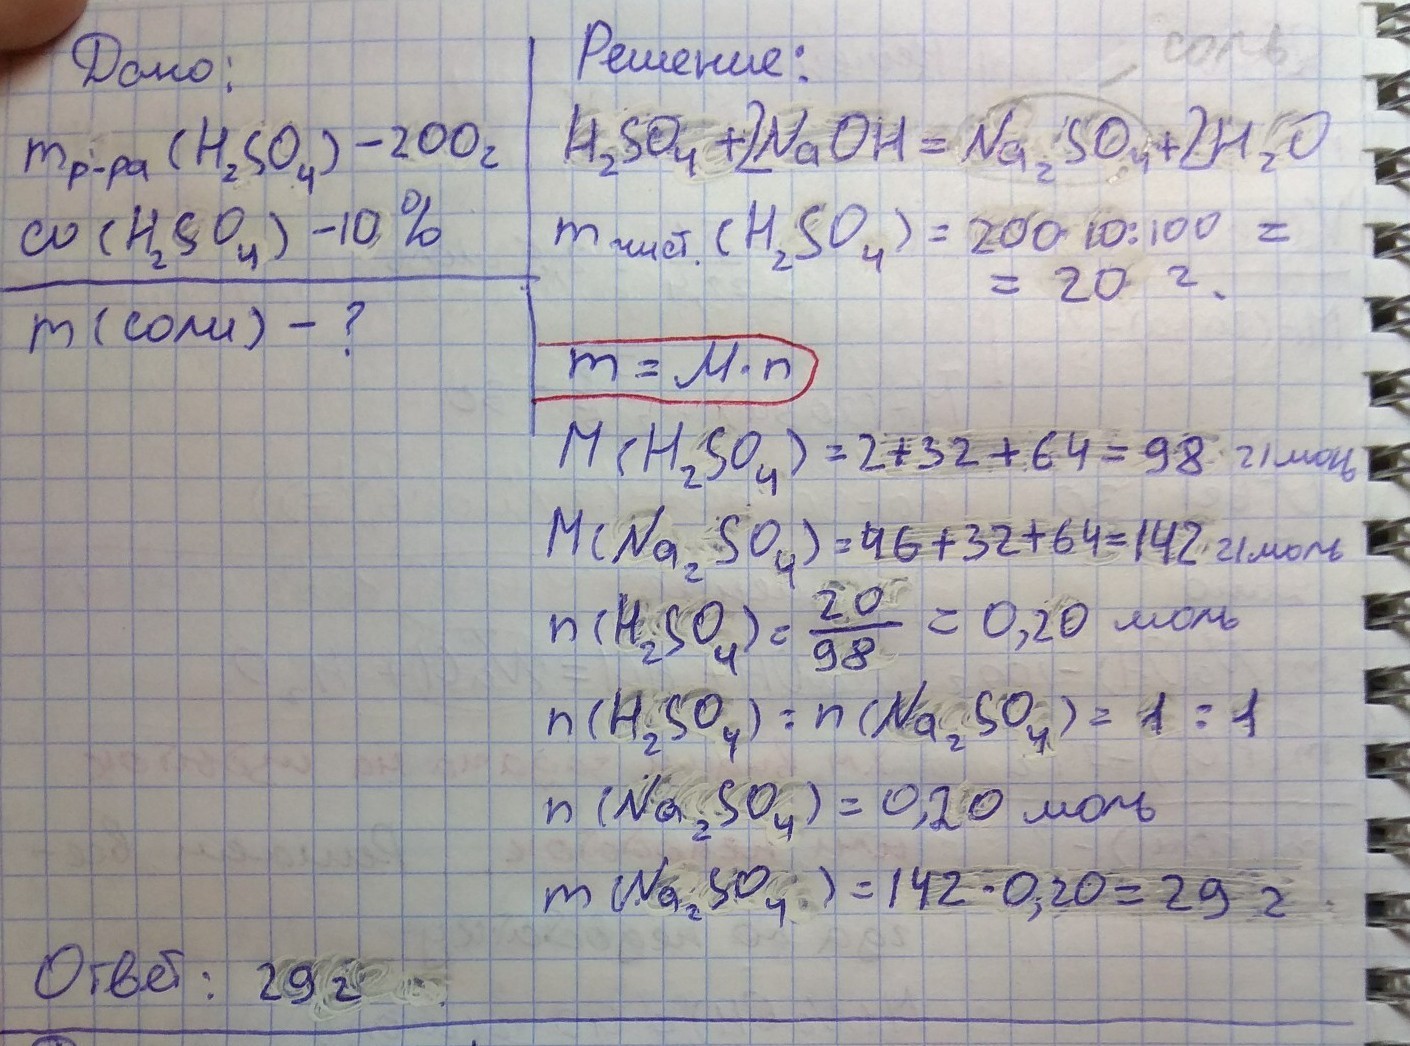 Дано:
mр-ра (H₂SO₄) – 200г
ω (H₂SO₄) – 10%
m (соли) – ?
Решение:
соль
H₂SO₄ + 2NaOH = Na₂SO₄ + 2H₂O
m чист. (H₂SO₄) = 200·10:100 =
= 20 г.
m = M·n
M (H₂SO₄) = 2+32+64 = 98 г/моль
M (Na₂SO₄) = 46+32+64 = 142 г/моль
n (H₂SO₄) = 20/98 = 0,20 моль
n (H₂SO₄) : n (Na₂SO₄) = 1 : 1
n (Na₂SO₄) = 0,20 моль
m (Na₂SO₄) = 142·0,20 = 29 г
Ответ: 29 г